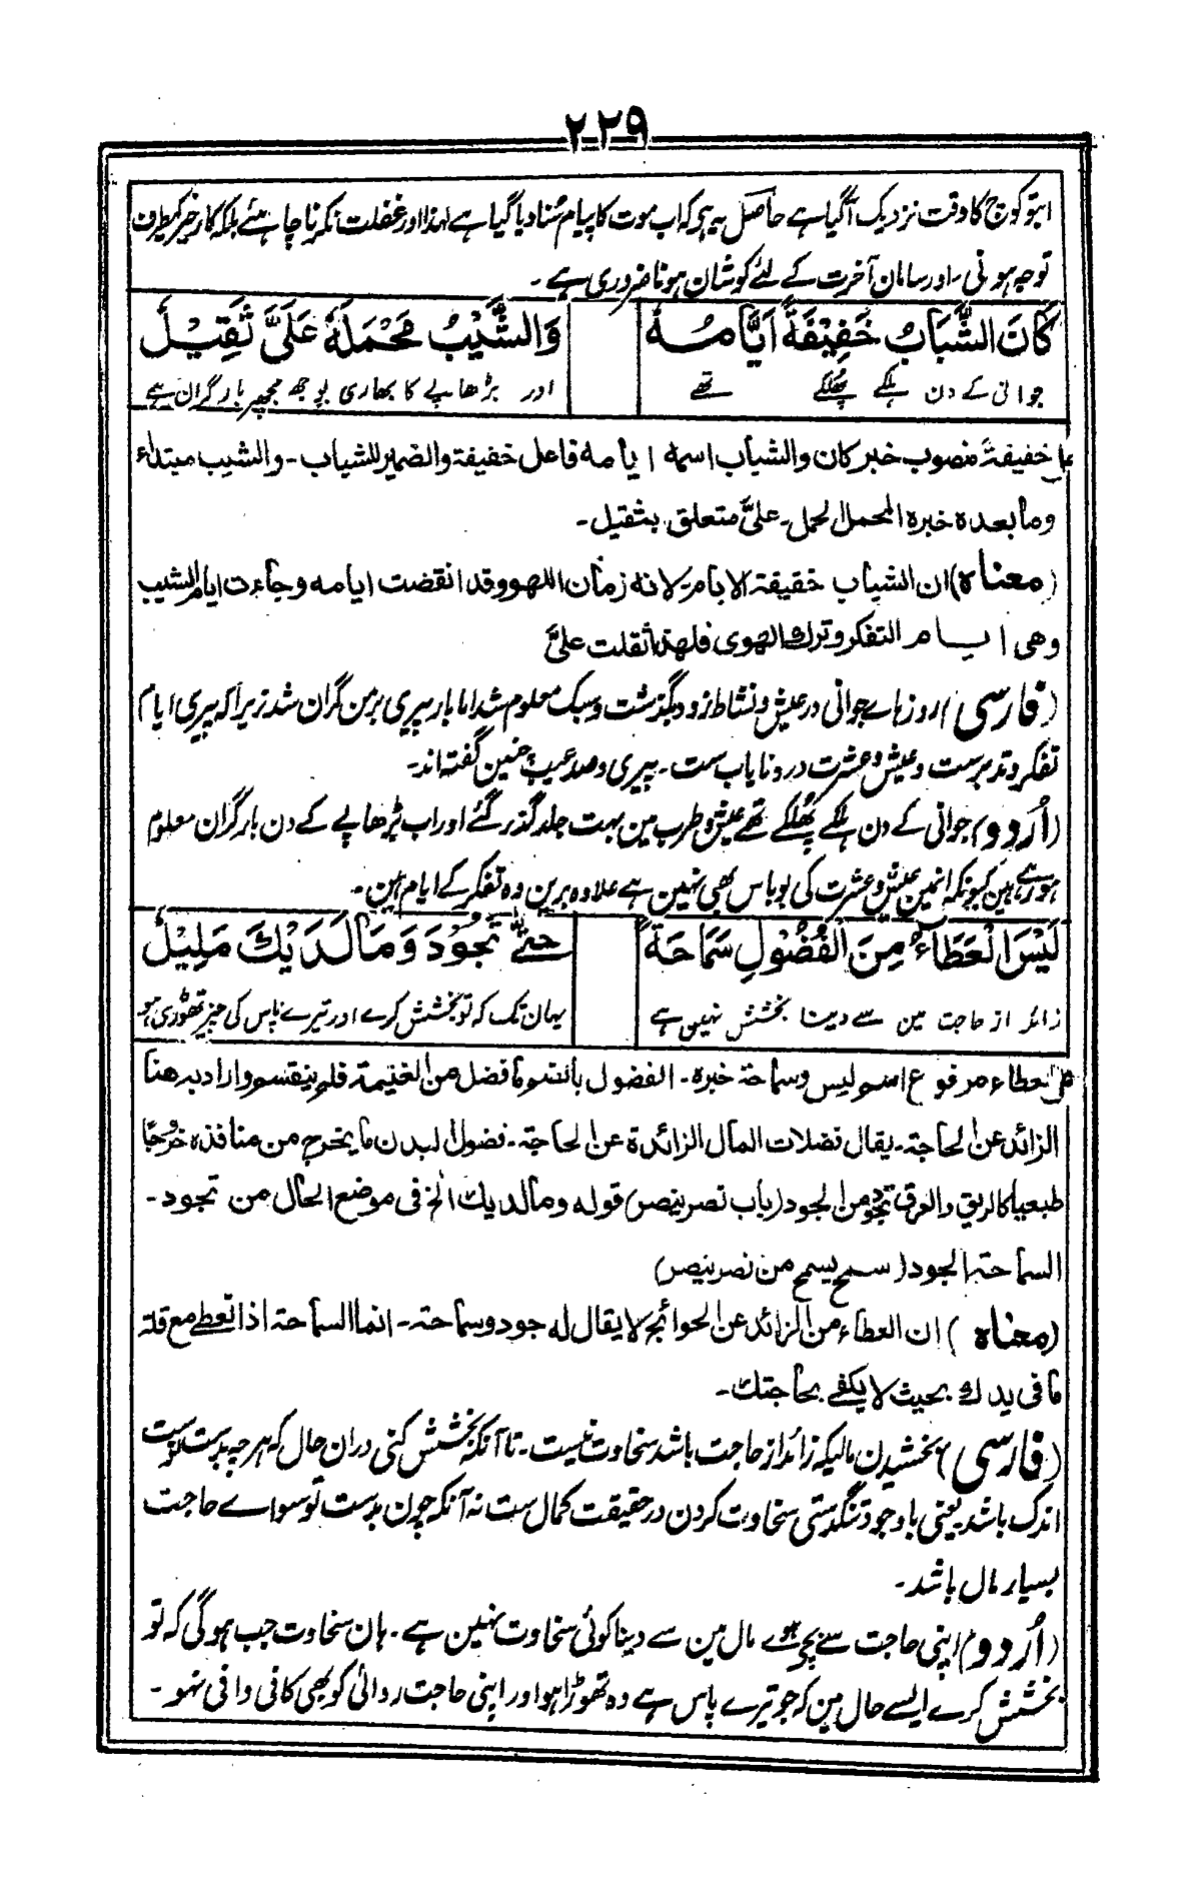 ۲۲۹
ابتو کوچ کا وقت نزدیک آگیا ہے حاصل یہ ہی کہ اب موت کا پیام سُنا دیا گیا ہے لہذا اور غفلت نکرنا چاہئے بلکہ کار خیر کیطرف
توجہ ہونی ۔ اور سامان آخرت کے لئے کوشان ہونا ضروری ہے ۔
كَانَ الشَّبَابُ خَفِيْفَةً اَيَّامُهٗ وَالشَّيْبُ مَحْمَلُهٗ عَلَيَّ ثَقِيْلُ
جوانی کے دن ہلکے پھُلکے تھے اور بڑھاپے کا بھاری بوجھ مجھپر بار گران ہے
خفیفةً منصوب خبر کان والشباب اسمه ایامه فاعل خفیفة والضمیر للشباب ۔ والشیب مبتداء
وما بعده خبره المحمل الحمل ۔ علیَّ متعلق بثقیل ۔
(معناه) ان الشباب خفیفة الایام ۔ لانه زمان اللهو وقد انقضت ایامه وجاءت ایام الشیب
وهی ایام التفکر وترك الهوی فلهذا ثقلت علیَّ
(فارسی) روزہاے جوانی در عیش و نشاط زود بگذشت و سبک معلوم شد اما بار پیری بر من گران شد زیرا کہ پیری ایام
تفکر و تدبر ست و عیش و عشرت درو نایاب ست ۔ پیری و صد عیب چنین گفتہ اند ۔
(اُردو) جوانی کے دن ہلکے پھُلکے تھے عیش و طرب مین بہت جلد گذر گئے اور اب بڑھاپے کے دن بار گران معلوم
ہو رہے ہین کیونکہ انمین عیش و عشرت کی بو باس بھی نہین ہے علاوہ برین وہ تفکر کے ایام ہین ۔
لَيْسَ الْعَطَاءُ مِنَ الْفُضُوْلِ سَمَاحَةً حَتّٰى تَجُوْدَ وَمَا لَدَيْكَ قَلِيْلُ
زائد از حاجت مین سے دینا بخشش نہین ہے یہان تک کہ تو بخشش کرے اور تیرے پاس کی چیز تھوڑی ہو
العطاء مرفوع اسم لیس وسماحة خبره ۔ الفضول بالضم ما فضل من الغنیمة فلم ینقسم واراد به هنا
الزائد عن الحاجة ۔ یقال فضلات المال الزائدة عن الحاجة ۔ فضول البدن ما یخرج من منافذه خروجًا
طبعیا کالریق والعرق تجود من الجود (باب نصر ینصر) قوله وما لدیك الخ فی موضع الحال من تجود ۔
السماحة الجود (سمح یسمح من نصر ینصر)
(معناه) ان العطاء من الزائد عن الحوائج لا یقال له جود وسماحة ۔ انما السماحة اذا تعطی مع قلة
ما فی یدك بحیث لا یکفی بحاجتك ۔
(فارسی) بخشیدن مالیکہ زائد از حاجت باشد سخاوت نیست ۔ تا آنکہ بخشش کنی دران حال کہ ہرچہ بدست تست
اندک باشد یعنی باوجود تنگدستی سخاوت کردن در حقیقت کمال ست نہ آنکہ چون بدست تو سواے حاجت
بسیار مال باشد ۔
(اُردو) اپنی حاجت سے بچے ہوے مال مین سے دینا کوئی سخاوت نہین ہے ۔ ہان سخاوت جب ہوگی کہ تو
بخشش کرے ایسے حال مین کہ جو تیرے پاس ہے وہ تھوڑا ہو اور اپنی حاجت روائی کو بھی کافی وافی نہو ۔